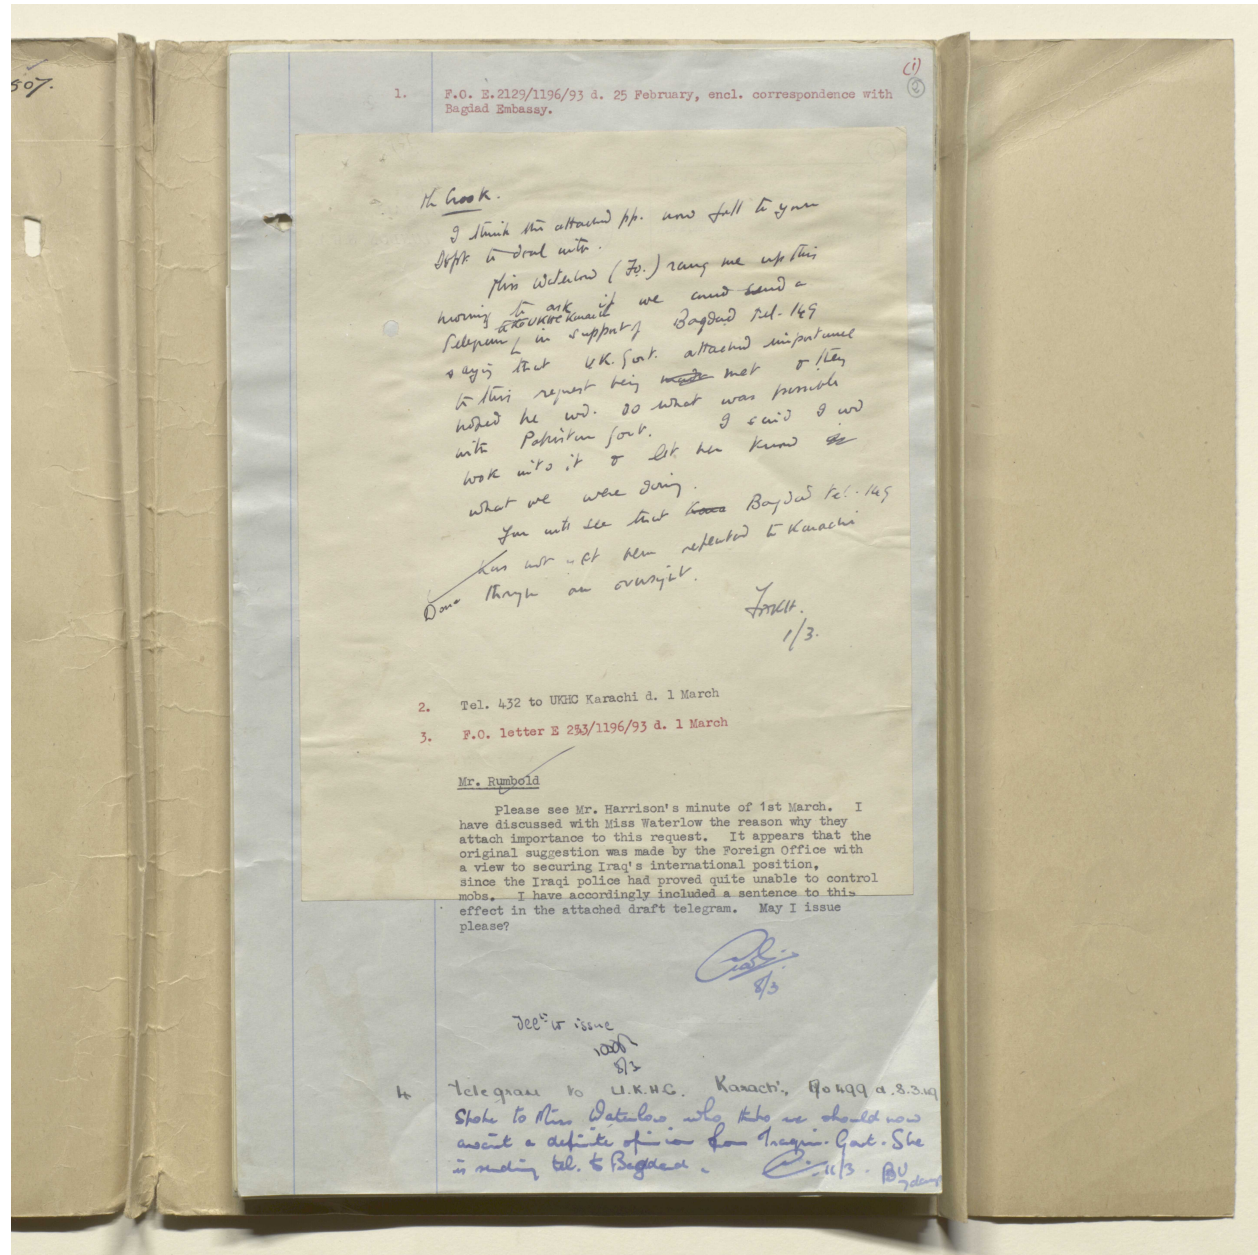 507.
(i)
2
1. F.O. E.2129/1196/93 d. 25 February, encl. correspondence with
Bagdad Embassy.
Mr Crook.
I think the attached pp. now fall to your
Dept to deal with.
Miss Waterlow (F.O.) rang me up this
morning to ask if we could send a
telegram to UKHC Karachi in support of Bagdad tel. 149
saying that U.K. Govt. attached importance
to this request being made met & they
hoped he wd. do what was possible
with Pakistan Govt. I said I wd
look into it & let her know
what we were doing.
You will see that Bagdad tel. 149
has not yet been repeated to Karachi
Done through an oversight.
1/3.
2. Tel. 432 to UKHC Karachi d. 1 March
3. F.O. letter E 253/1196/93 d. 1 March
Mr. Rumbold
Please see Mr. Harrison's minute of 1st March. I
have discussed with Miss Waterlow the reason why they
attach importance to this request. It appears that the
original suggestion was made by the Foreign Office with
a view to securing Iraq's international position,
since the Iraqi police had proved quite unable to control
mobs. I have accordingly included a sentence to this
effect in the attached draft telegram. May I issue
please?
8/3
to issue
8/3
4 Telegram to U.K.H.C. Karachi, No 499 d. 8.3.49
Spoke to Miss Waterlow who thks we should now
await a definite opinion from Iraqui Govt. She
is sending tel. to Bagdad.
11/3.
BU